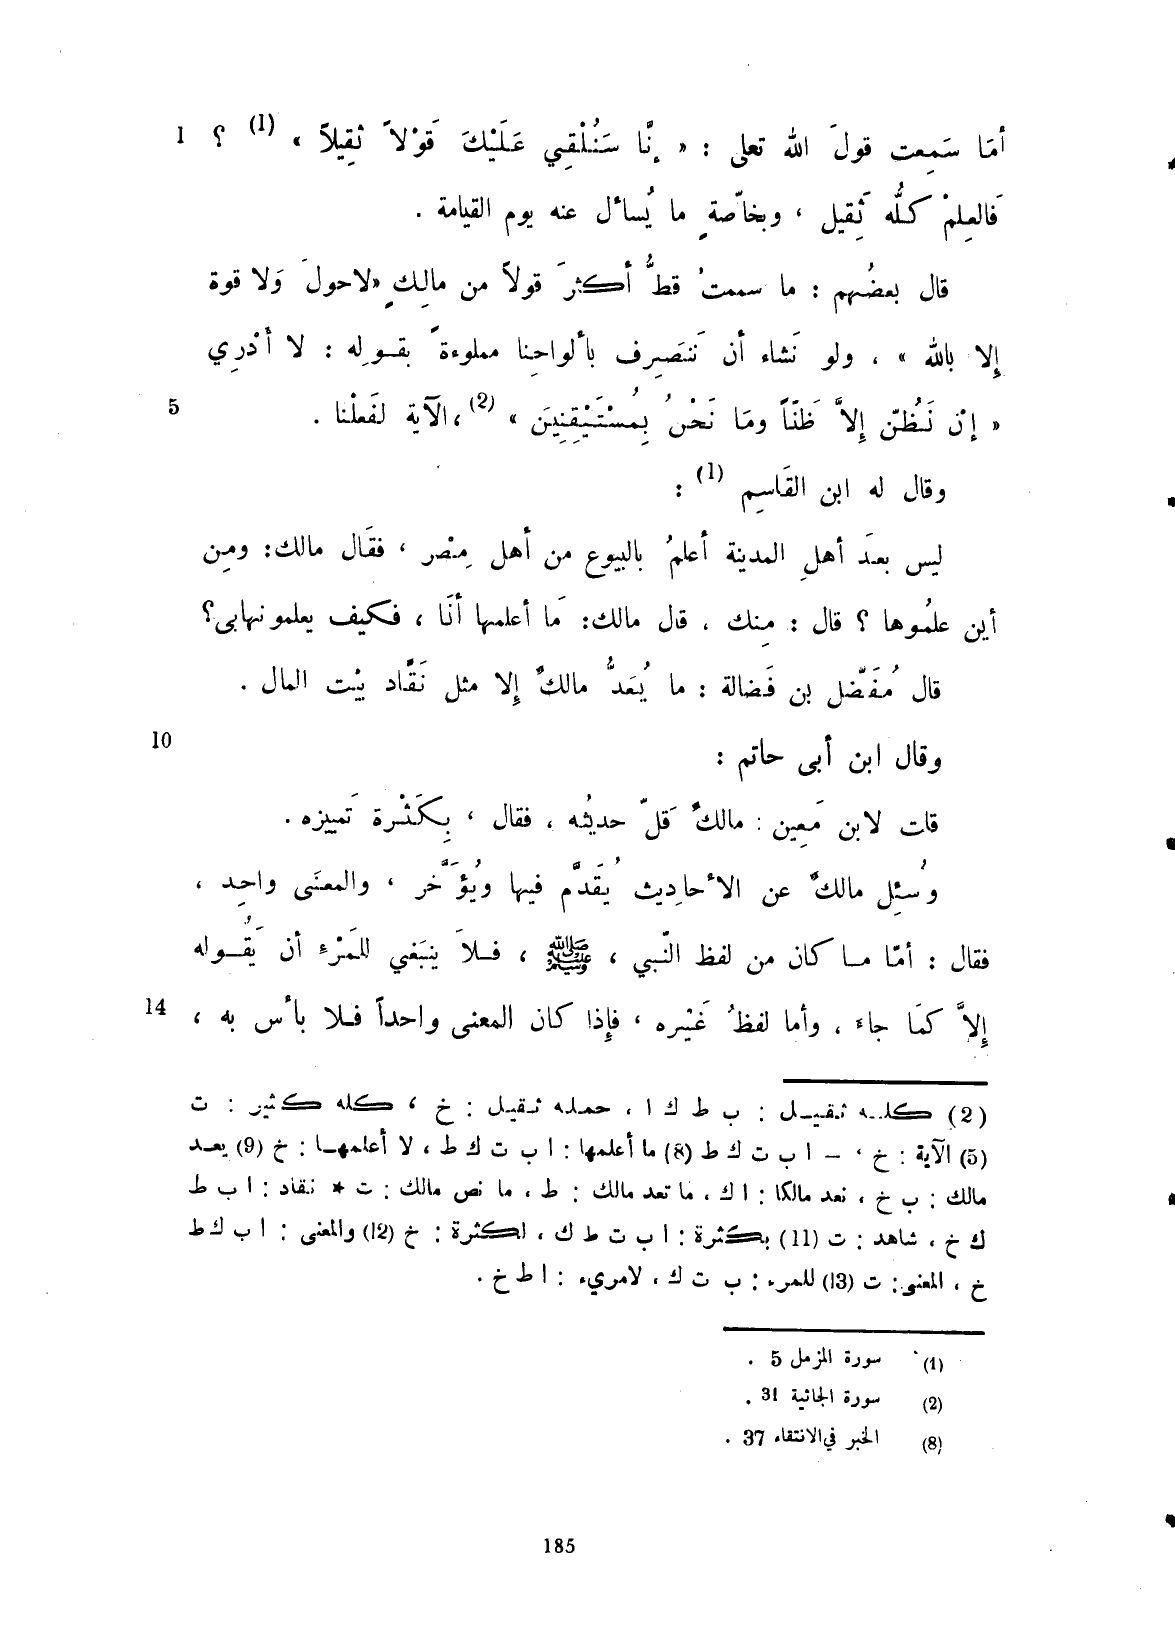 أمَا سَمِعت قولَ الله تعلى : « إنَّا سَنُلْقِي عَلَيْكَ قَوْلاً ثَقِيلاً » (1) ؟ 1
فَالعِلمْ كلُّه ثَقِيل ، وبخاصّةٍ ما يُسأل عنه يوم القيامة .
قال بعضُهم : ما سمعتُ قطُّ أكثرَ قولاً من مالِكٍ «لاحولَ وَلا قوة
إلا بالله » ، ولو نَشاء أن نَنصَرِف بألواحِنا مملوءةً بقـولِه : لا أدْرِي
« إنْ نَظُنّ إلاَّ ظَنّاً ومَا نَحْنُ بِمُسْتَيْقِنِينَ » (2) ،الآية لفَعلْنا . 5
وقال له ابن القَاسِم (1) :
ليس بعدَ أهلِ المدينة أعلمُ بالبيوع من أهل مِصْر ، فقَال مالك: ومِن
أين علمُوها ؟ قال : مِنك ، قال مالك: مَا أعلمها أنَا ، فكيف يعلمونهابى؟
قال مُفَضّل بن فَضالة : ما يُعَدُّ مالكٌ إلا مثل نَقَّاد بيْت المال .
وقال ابن أبى حاتم : 10
قات لابن مَعِين : مالكٌ قَلّ حديثُه ، فقال ، بِكَثْرة تَمييزه .
وسُئِل مالكٌ عن الأحادِيث يُقَدَّم فيها ويُؤَخَّر ، والمعنَى واحِد ،
فقال : أمّا مـا كان من لفظ النّبي ، ﷺ ، فـلاَ ينبَغي للمَرْء أن يَقُـوله
إلاَّ كمَا جاء ، وأما لفظُ غَيْره ، فإذا كان المعنى واحداً فـلا بأس به ، 14
(2) كلـه ثـقيـل : ب ط ك ا ، حمله ثـقيل : خ ، كله كثير : ت
(5) الآية : خ ، – ا ب ت ك ط (8) ما أعلمها : ا ب ت ك ط ، لا أعلمهـا : خ (9) يعـد
مالك : ب خ ، نعد مالكا : ا ك ، ما تعد مالك : ط ، ما نص مالك : ت * نقاد : ا ب ط
ك خ ، شاهد : ت (11) بكثرة : ا ب ت ط ك ، لكثرة : خ (12) والمعنى : ا ب ك ط
خ ، المعنى: ت (13) للمرء : ب ت ك ، لامريء : ا ط خ .
(1) سورة المزمل 5 .
(2) سورة الجاثية 31 .
(8) الخبر في الانتقاء 37 .
185